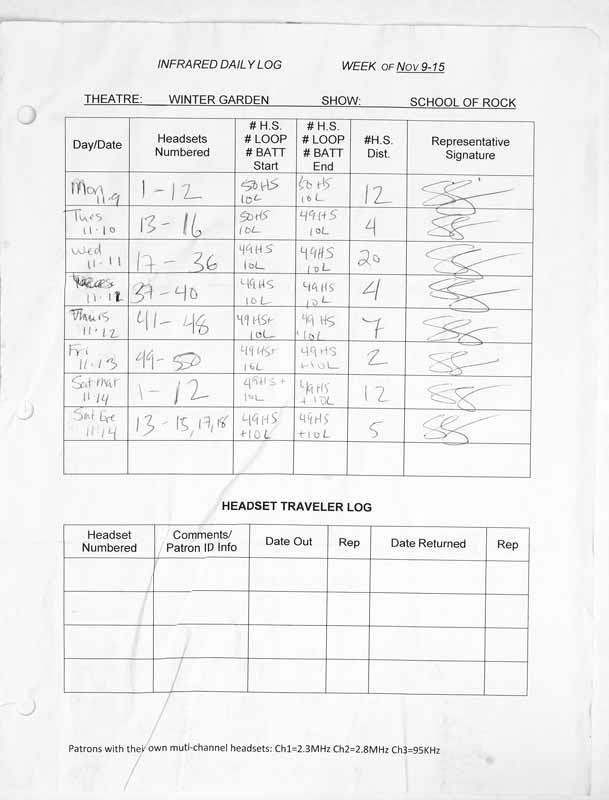 INFRARED DAILY LOG WEEK OF NOV 9-15
THEATRE: WINTER GARDEN SHOW: SCHOOL OF ROCK
Day/Date Headsets Numbered # H.S. # LOOP # BATT Start # H.S. # LOOP # BATT End #H.S. Dist. Representative Signature
Mon 11.9 1-12 50HS 10L 50HS 10L 12
Tues 11.10 13-16 50HS 10L 49HS 10L 4
Wed 11.11 17-36 49HS 10L 49HS 10L 20
11.12 37-40 49HS 10L 49HS 10L 4
Thurs 11.12 41-48 49HS+ 10L 49HS +10L 7
Fri 11.13 49-50 49HS+ 10L 49HS +10L 2
Sat mat 11.14 1-12 49HS+ 10L 49HS +10L 12
Sat Eve 11.14 13-15,17,18 49HS +10L 49HS +10L 5
HEADSET TRAVELER LOG
Headset Numbered Comments/ Patron ID Info Date Out Rep Date Returned Rep
Patrons with their own muti-channel headsets: Ch1=2.3MHz Ch2=2.8MHz Ch3=95KHz